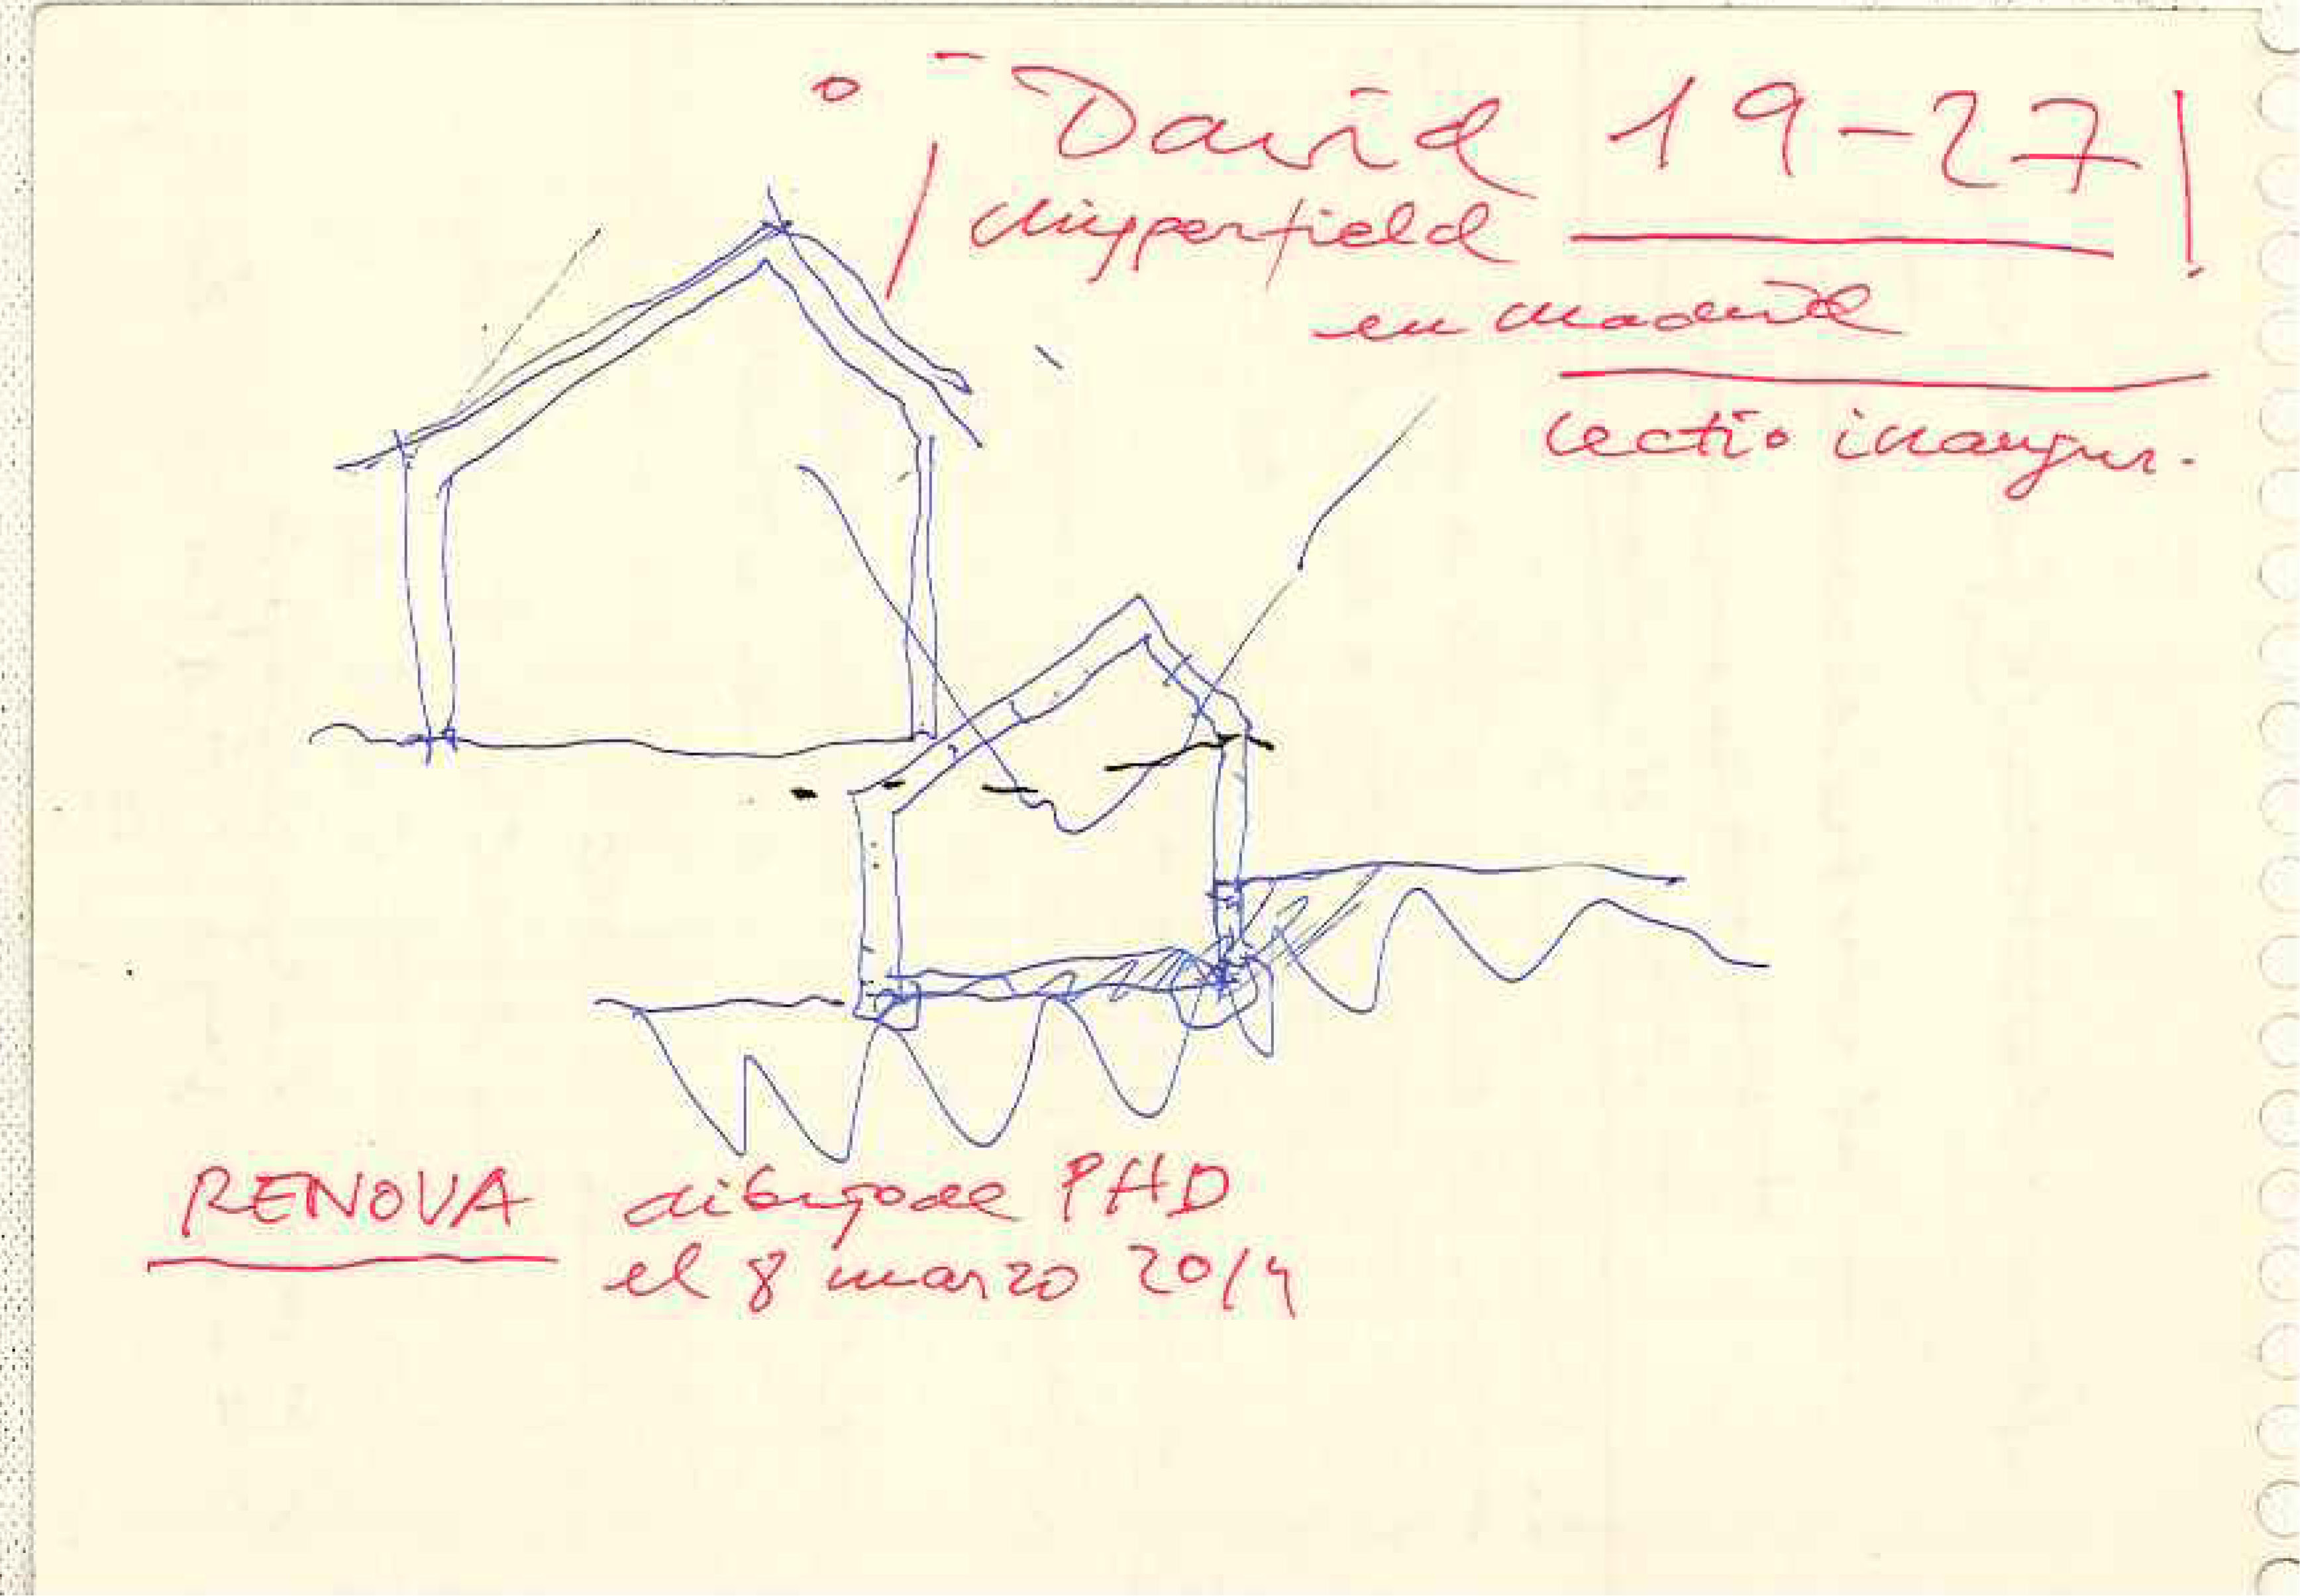 ¡David 19-27!
Chipperfield
en Madrid
lectio inaugur.
RENOVA dibujo de PHD
el 8 marzo 2014